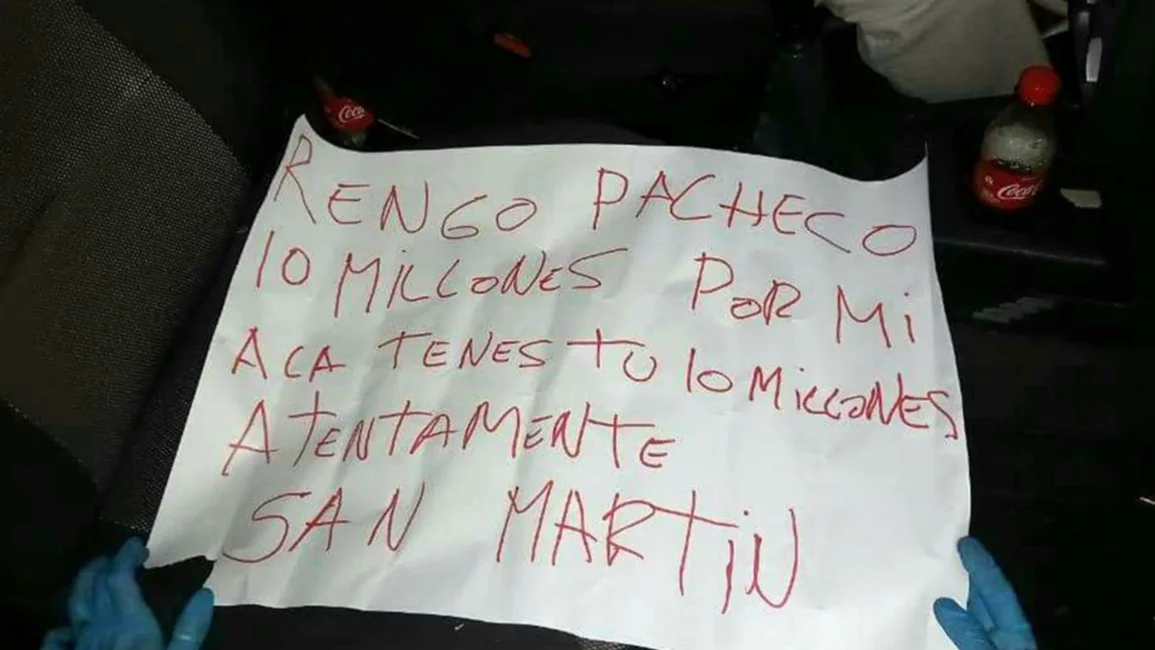 RENGO PACHECO
10 MILLONES POR Mi
ACA TENES TU 10 MiLLONES
ATENTAMENTE
SAN MARTiN
Coca
Coca